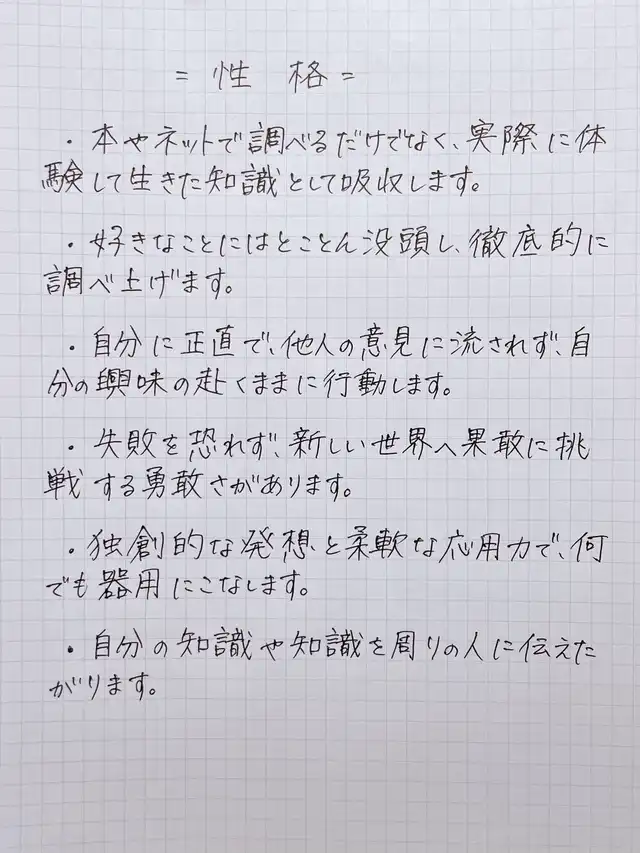 = 性 格 =
・本やネットで調べるだけでなく、実際に体
験して生きた知識として吸収します。
・好きなことにはとことん没頭し、徹底的に
調べ上げます。
・自分に正直で、他人の意見に流されず、自
分の興味の赴くままに行動します。
・失敗を恐れず、新しい世界へ果敢に挑
戦する勇敢さがあります。
・独創的な発想と柔軟な応用力で、何
でも器用にこなします。
・自分の知識や知識を周りの人に伝えた
がります。